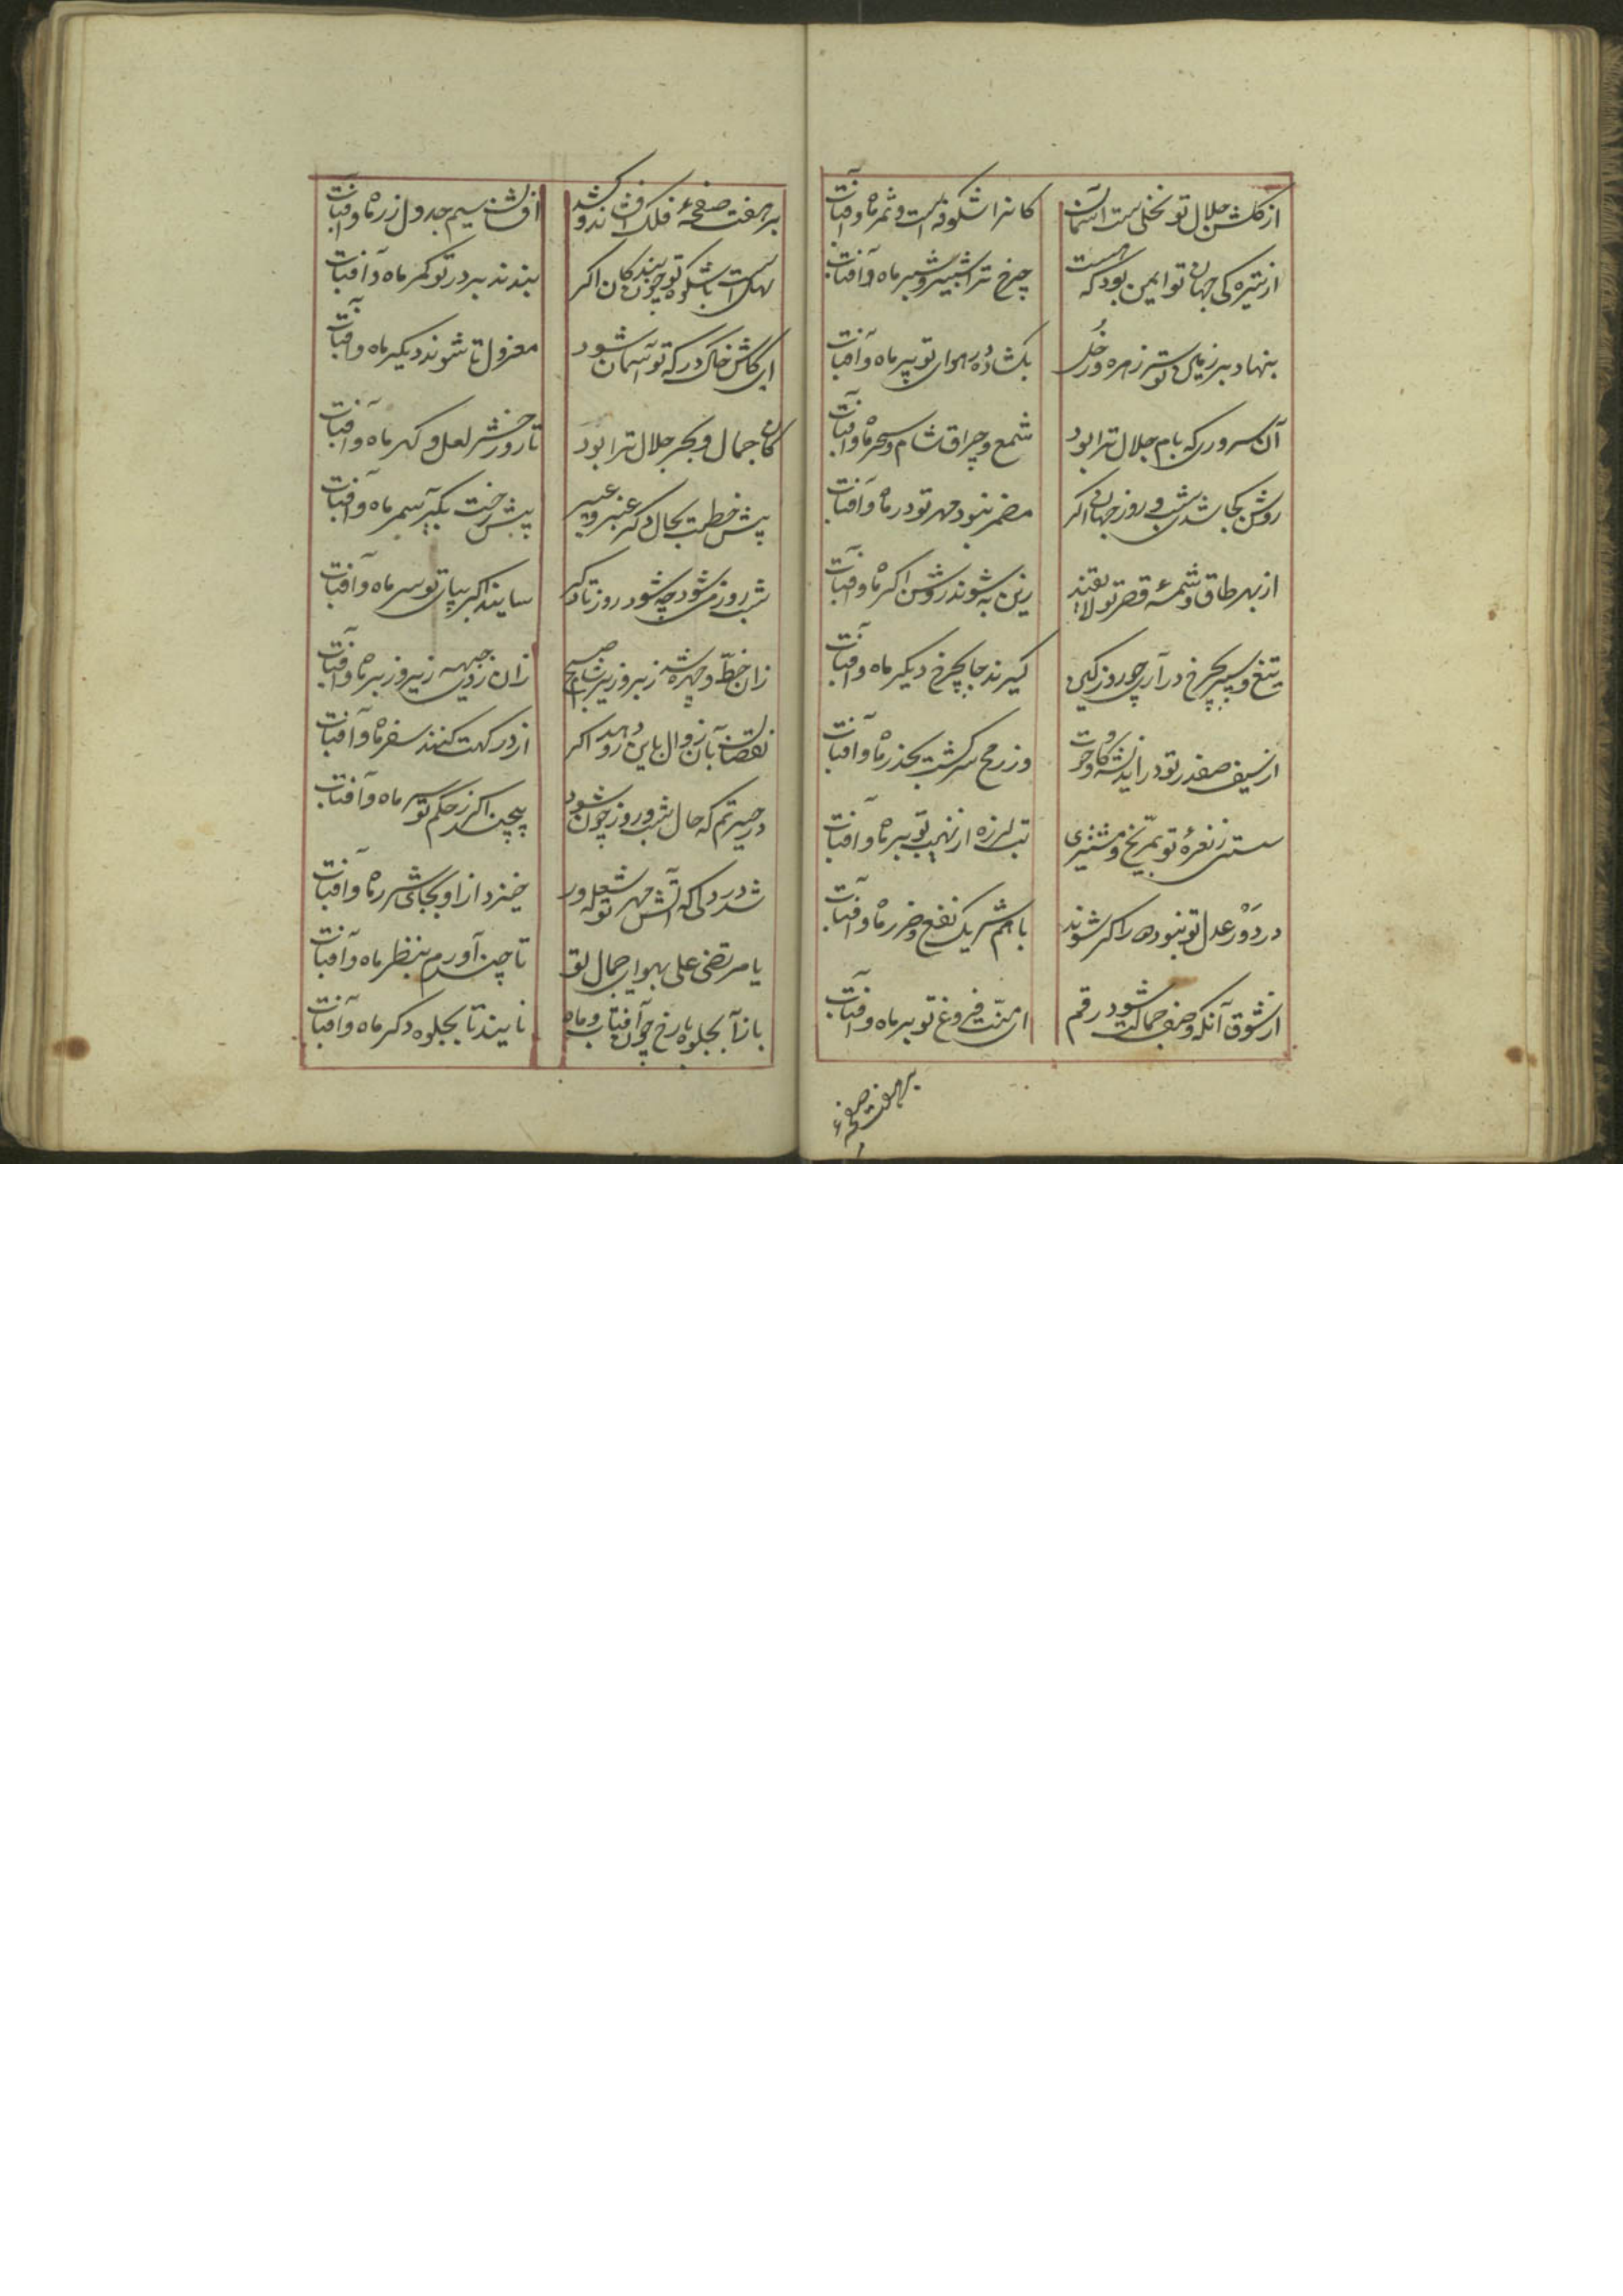 از گلشن جلال تو نخلی‌ست آسمان کانرا شکوفه است و ثمر ماه و آفتاب
از تیره کی جهان تو ایمن بود که هست چرخ ترا شبیر و شبر ماه و آفتاب
بنهاد بر زمین تو سر زهره و زحل بگشاده در هوای تو پر ماه و آفتاب
آن سروری که بام جلال ترا بود شمع و چراق شام و سحر ماه و آفتاب
روشن کجا شدی شب و روز جهان اگر مضمر نبود مهر تو در ماه و آفتاب
از بهر طاق و شمسهٔ قصر تو لایقند زین به شوند روشن اگر ماه و آفتاب
تیغ و سپر بچرخ در آری چو روز کین گیرند جا بچرخ دیگر ماه و آفتاب
از سیف صفدر تو در اندیشه گاو و حوت وز رمح سرکشت بحذر ماه و آفتاب
سستی ز نعرهٔ تو بمریخ و مشتری تب لرزه از نهیب تو بر ماه و آفتاب
در دَوْر عدل تو نبود ره اگر شوند باهم شریک نفع و ضرر ماه و آفتاب
از شوق آنکه وصف جمالت شود رقم ای منّت فروغ تو بر ماه و آفتاب
بر هفت صفحهٔ
بر هفت صفحهٔ فلک افشاند و کشد افشان سیم جدول زر ماه و آفتاب
سهل است با شکوه تو چون بندگان اگر بندند بر در تو کمر ماه و آفتاب
ای کاش خاک درگه تو آسمان شود معزول تا شوند دیگر ماه و آفتاب
کان جمال و بحر جلال ترا بود تا روز حشر لعل و گهر ماه و آفتاب
پیش خطت بحال دگر عنبر و عبیر پیش رخت بگیر سمر ماه و آفتاب
شب روز می شود چه شود روز تا دگر سایند اگر بپای تو سر ماه و آفتاب
زان خطّ و چهره شد زبر و زیر شام صبح زان زلف جبهه زیر و زبر ماه و آفتاب
نقصان بآن زوال باین رو دهد اگر از درگهت کنند سفر ماه و آفتاب
در حیرتم که حال شب و روز چون شود پیچند اگر ز حکم تو سر ماه و آفتاب
شد در دلی که آتش مهر تو شعله ور خیزد از او بجای شرر ماه و آفتاب
یا مرتضی علی بهوای جمال تو تا چند آورم بنظر ماه و آفتاب
باز آ بجلوه با رخ چون آفتاب و ماه نایند تا بجلوه دگر ماه و آفتاب